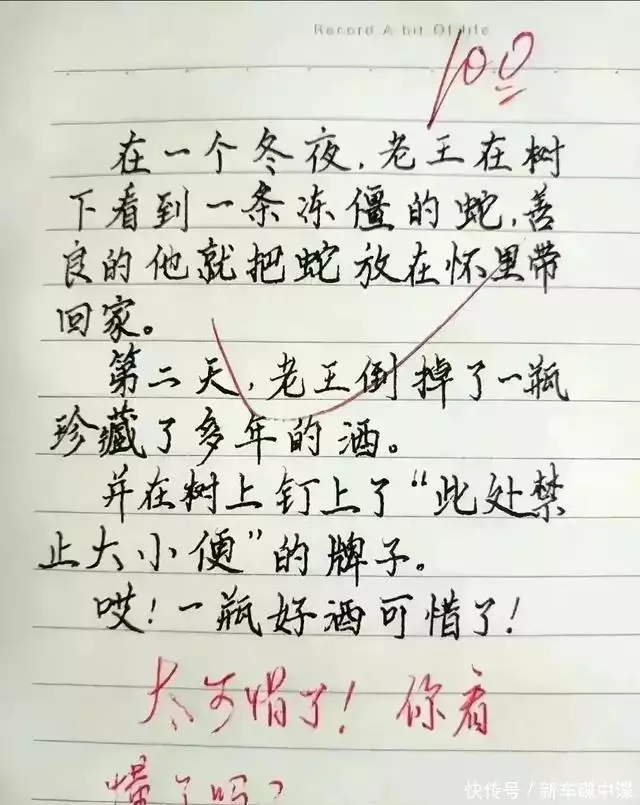 Record A bit Of life
100
在一个冬夜,老王在树
下看到一条冻僵的蛇,善
良的他就把蛇放在怀里带
回家。
第二天,老王倒掉了一瓶
珍藏了多年的酒。
并在树上钉上了“此处禁
止大小便”的牌子。
哎!一瓶好酒可惜了!
太可惜了!你看
懂了吗?
快传号/新车碟中谍